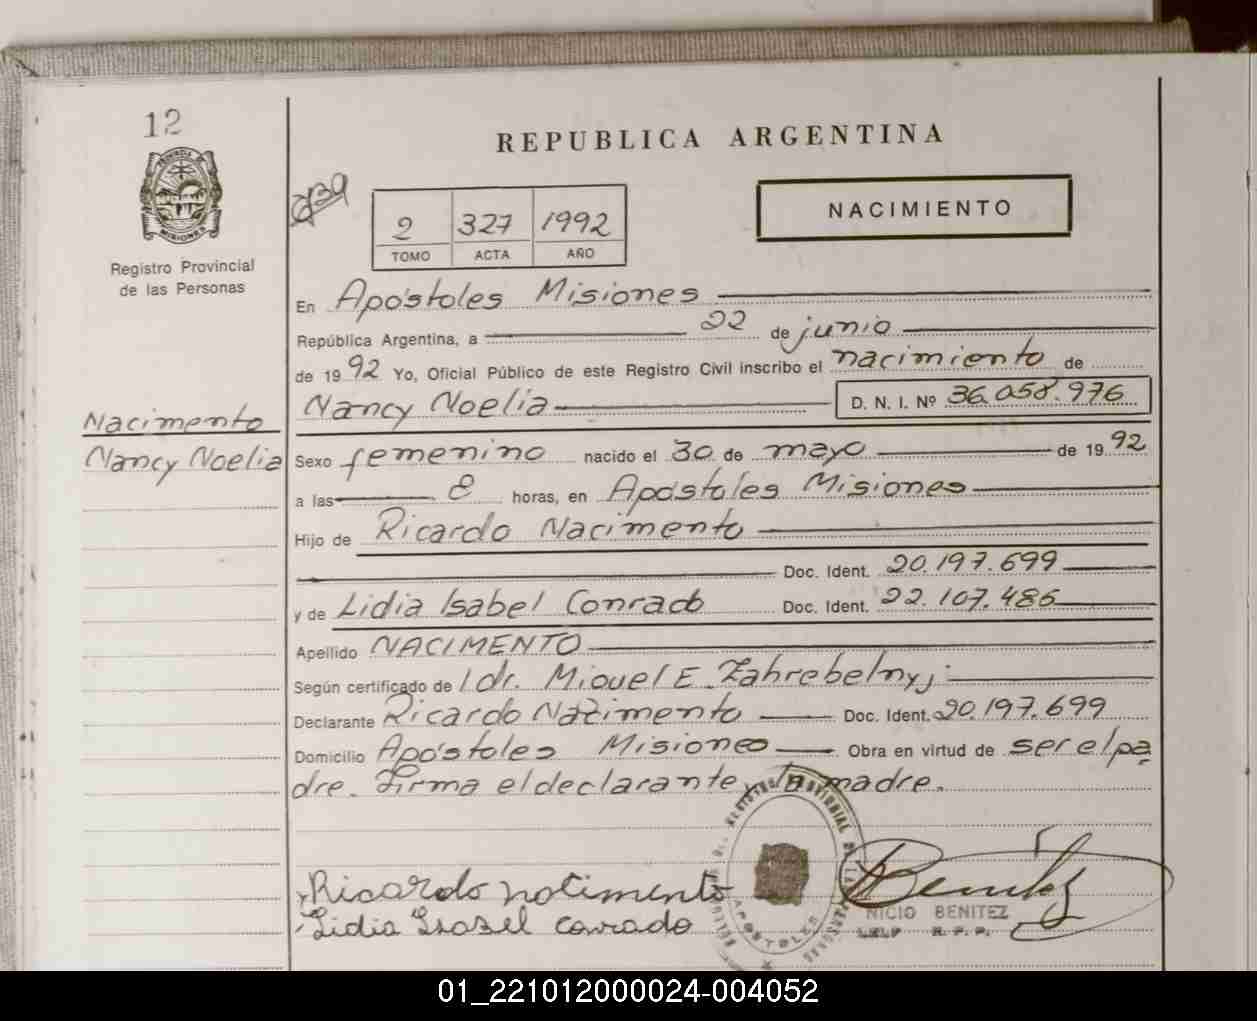 12
PROVINCIA DE
MISIONES
Registro Provincial
de las Personas
Nacimento
Nancy Noelia
REPUBLICA ARGENTINA
239
2 327 1992
TOMO ACTA AÑO
NACIMIENTO
En Apóstoles Misiones
República Argentina, a 22 de junio
de 1992 Yo, Oficial Público de este Registro Civil inscribo el nacimiento de
Nancy Noelia D. N. I. Nº 36.058.976
Sexo femenino nacido el 30 de mayo de 1992
a las 8 horas, en Apóstoles Misiones
Hijo de Ricardo Nacimento
Doc. Ident. 20.197.699
y de Lidia Isabel Conrado Doc. Ident. 22.107.486
Apellido NACIMENTO
Según certificado de l dr. Miguel E. Zahrebelnyj
Declarante Ricardo Nacimento Doc. Ident. 20.197.699
Domicilio Apóstoles Misiones Obra en virtud de ser el pa
dre. Firma el declarante y la madre.
Ricardo notimento
Lidia Isabel conrado
REGISTRO PROVINCIAL DE LAS PERSONAS
APOSTOLES
Benitez
NICIO BENITEZ
R. P. P.
01_221012000024-004052